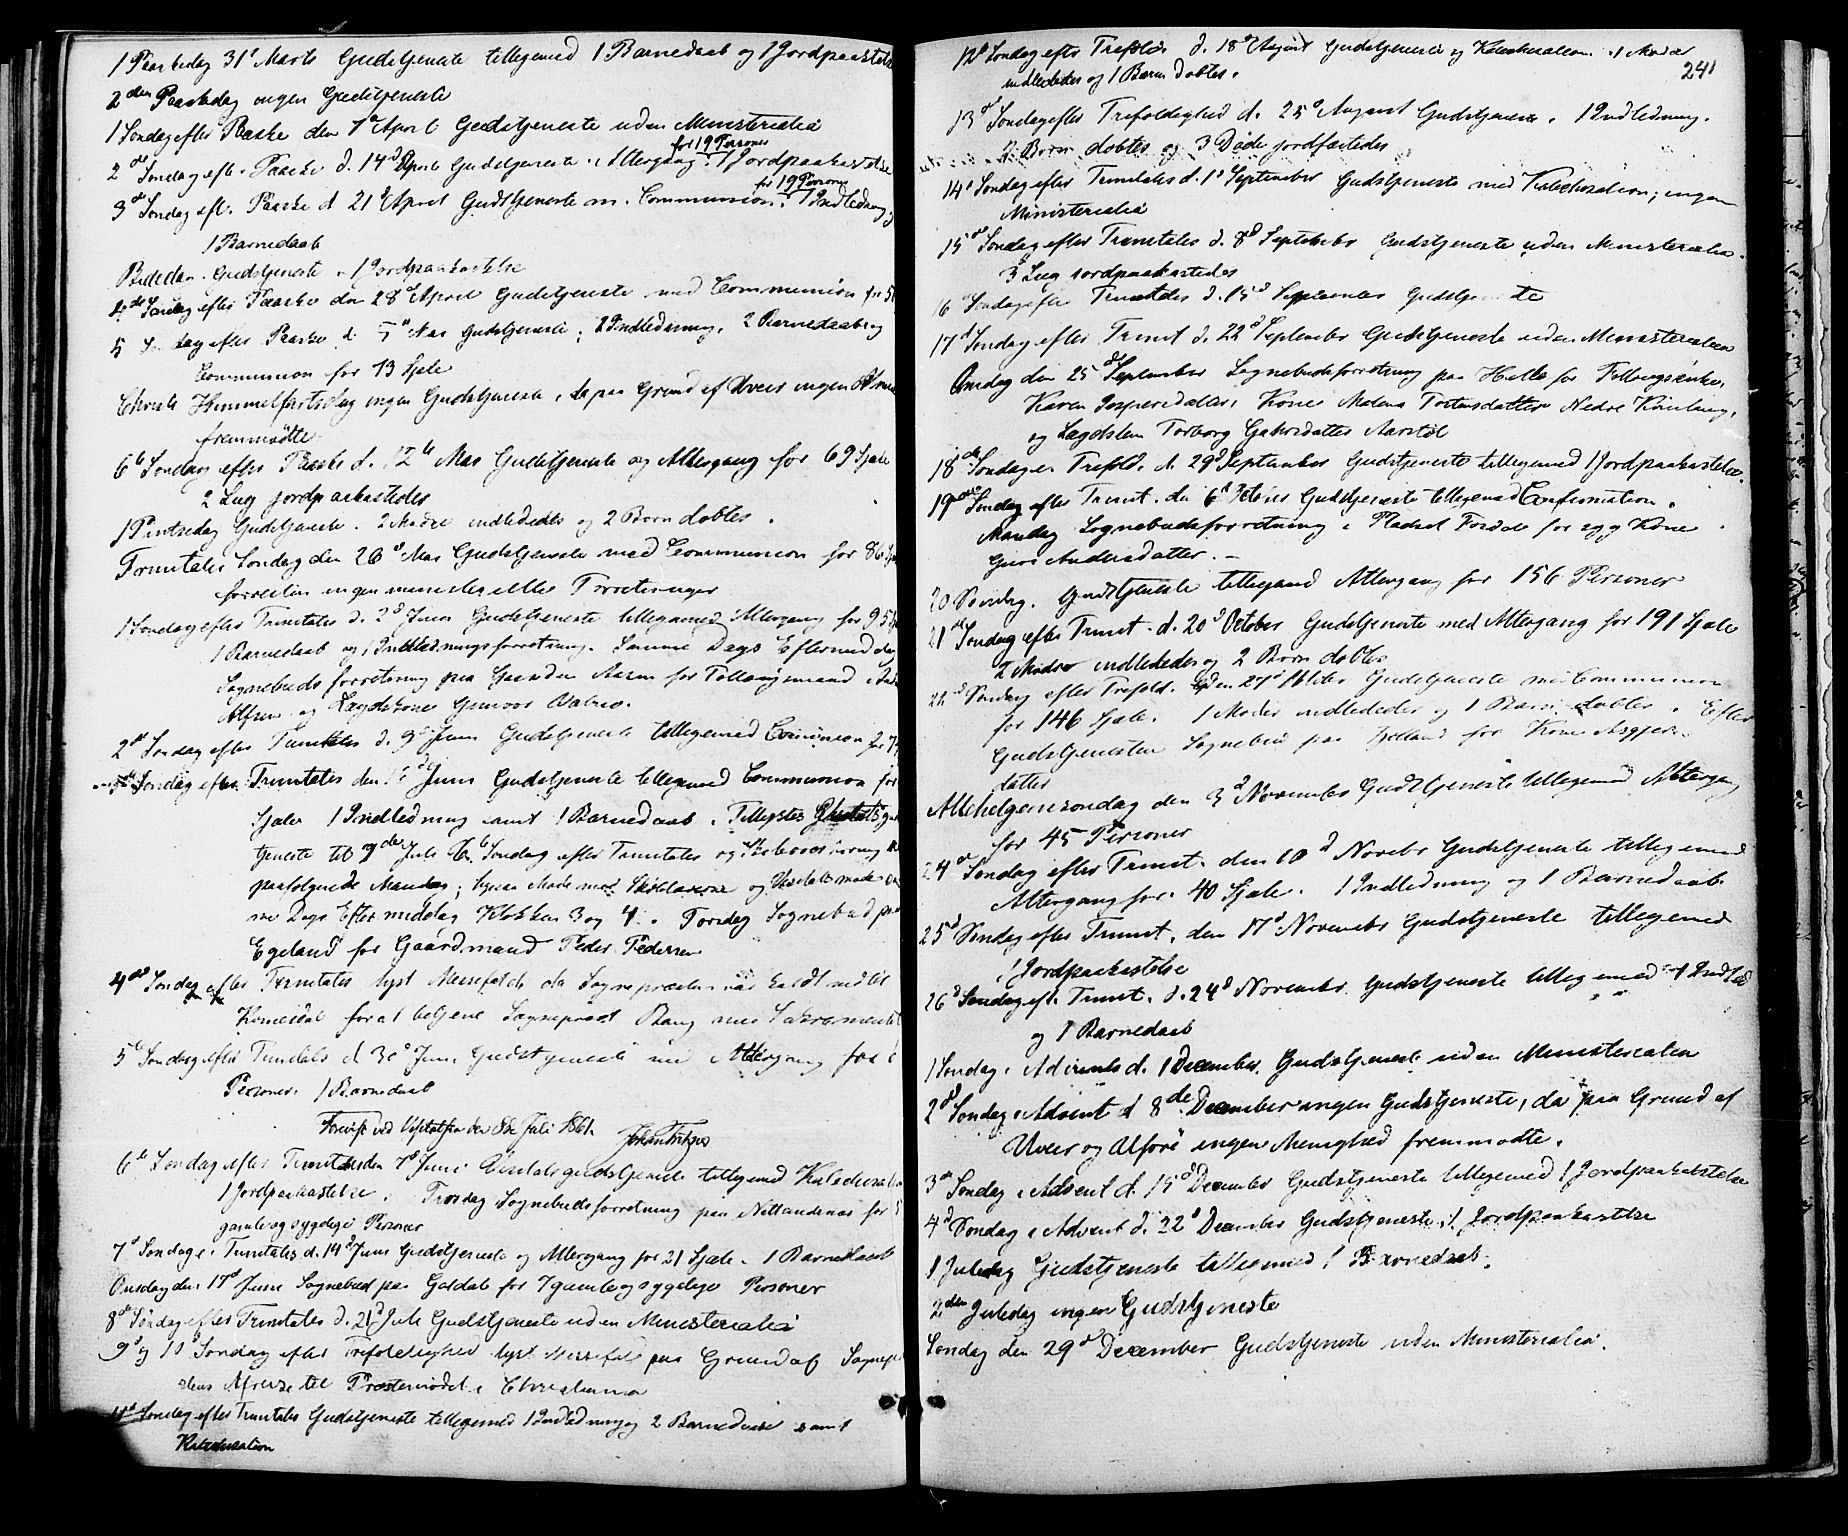 1 Paaskedag 31te Marts Gudstjeneste tillegemed 1 Barnedaab og 1 Jordpaakastelse
2den Paaskedag ingen Gudstjeneste
1 Søndag efter Paaske den 7de April Gudstjeneste uden Ministerialia
for 19 Personer
2den Søndag eft. Paaske d. 14d April Gudstjeneste. Altergang. 1 Jordpaakastelse
for 19 Personer
3de Søndag eft. Paaske d 21d April Gudstjeneste m. Communion. 1 Indledning,
1 Barnedaab
Bededag. Gudstjeneste. 1 Jordpaakastelse
4de Søndag efter Paaske den 28d April Gudstjeneste med Communion for
5 Søndag efter Paaske d. 5d Mai Gudstjeneste; 2 Indledning, 2 Barnedaab og
Communion for 13 Sjæle
Christi Himmelfartsdag ingen Gudstjeneste, da paa Grund af Uveir ingen
fremmødte.
6te Søndag efter Paaske d. 12te Mai Gudstjeneste og Altergang for 69 Sjæle
2 Liig jordpaakastedes
1 Pintsedag Gudstjeneste. 2 Mødre indlededes og 2 Børn døbtes.
Trinitatis Søndag den 26d Mai Gudstjeneste med Communion for 86
forresten ingen ministerielle Forretninger
1 Søndag efter Trinitatis d. 2d Juni Gudstjeneste tillegemed Altergang for 95
1 Barnedaab og 1 Indledningsforretning. Samme Dags Eftermiddag
Sognebudsforretning paa Gaarden for Føllaugsmand
og Lægdskone Gunvor
2d Søndag efter Trinitatis d. 9d Juni Gudstjeneste tillegemed Communion for
Søndag efter Trinitatis den Juni Gudstjeneste tillegemed Communion for
Sjæle 1 Indledning samt 1 Barnedaab. Tillystes
tjeneste til 7de Juli 6te Søndag efter Trinitatis og
paafølgende Mandag; ligesaa Møde med Skolelærerne og
me Dags Eftermiddag Klokken 3 og 4. Torsdag Sognebud paa
Egeland for Gaardmand Peder Pedersen
4de Søndag efter Trinitatis lyst Messefald da Sognepræsten var kaldt ned til
for at betjene Sognepræst Bang med Sakramentet
5te Søndag efter Trinitatis d. 30d Juni Gudstjeneste med Altergang for 6
Personer. 1 Barnedaab
Forevist ved Visitatsen den 8de Juli 1861. Johan Fritzner
6te Søndag efter Trinitatis den 7d Juni Visitatsgudstjeneste tillegemed Katechisation
1 Jordpaakastelse. Torsdag Sognebudsforretning paa for
gamle og sygelige Personer
7d Søndag e. Trinitatis d. 14d Juni Gudstjeneste og Altergang for 21 Sjæle. 1 Barnedaab
Onsdag den 17d Juni Sognebud paa for 7 gamle og sygelige Personer
8de Søndag efter Trinitatis d. 21d Juli Gudstjeneste uden Ministerialia
9d og 10d Søndag efter Trefoldighed lyst Messefald paa Grund af Sognepræ
stens Afreise til Præstemødet i Christiania
11d Søndag efter Trinitatis Gudstjeneste tillegemed 1 Indledning og 2 Barnedaab samt
Katechisation
241
12d Søndag efter Trefold. d. 18d August Gudstjeneste og Katechisation. 1 Moder
indlededes og 1 Barn døbtes.
13d Søndag efter Trefoldighed d. 25d August Gudstjeneste. 1 Indledning.
2 Børn døbtes og 3 Døde jordfæstedes
14d Søndag efter Trinitatis d. 1d September Gudstjeneste med Katechisation; ingen
Ministerialia
15d Søndag efter Trinitatis d. 8d September Gudstjeneste uden Ministerialia.
3 Liig jordpaakastedes
16 Søndag efter Trinitatis d. 15d September Gudstjeneste
17d Søndag efter Trinit d. 22d September Gudstjeneste uden Ministerialia
Onsdag den 25d September Sognebudsforretning paa Helle for Føllaugsenke,
Karen Jespersdatter, Kone Malena Tostensdatter Nedre
og Lægdslem Torborg
18de Søndag e. Trefold. d. 29d September Gudstjeneste tillegemed 1 Jordpaakastelse.
19de Søndag efter Trinit. den 6d October Gudstjeneste tillegemed Confirmation.
Mandag Sognebudsforretning i for syg Kone
Guri Andersdatter. —
20 Søndag. Gudstjeneste tillegemed Altergang for 156 Personer
21de Søndag efter Trinit. d. 20d October Gudstjeneste med Altergang for 191 Sjæle
2 Mødre indlededes og 2 Børn døbtes
22d Søndag efter Trefold. den 27d October Gudstjeneste med Communion
for 146 Sjæle. 1 Moder indlededes og 1 Barn døbtes. Efter
Gudstjenesten Sognebud paa for Kone Asgjers-
datter
Allehelgenssøndag den 3d November Gudstjeneste tillegemed Altergang
for 45 Personer
24d Søndag efter Trinit. den 10d Novebr Gudstjeneste tillegemed
Altergang for 40 Sjæle. 1 Indledning og 1 Barnedaab
25d Søndag efter Trinit. den 17d Novembr Gudstjeneste tillegemed
1 Jordpaakastelse
26d Søndag eft. Trinit. d. 24d Novembr. Gudstjeneste tillegemed 1 Indled
og 1 Barnedaab
1 Søndag i Advent d. 1 December. Gudstjeneste uden Ministerialia
2d Søndag i Advent d 8de December ingen Gudstjeneste, da paa Grund af
Uveir og Ulføre ingen Menighed fremmødte.
3de Søndag i Advent d. 15d December Gudstjeneste tillegemed 1 Jordpaakastelse
4d Søndag i Advent d. 22d December Gudstjeneste. 1 Jordpaakastelse
1 Juledag Gudstjeneste tillegemed 1 Barnedaab.
2den Juledag ingen Gudstjeneste
Søndag den 29d December Gudstjeneste uden Ministerialia.